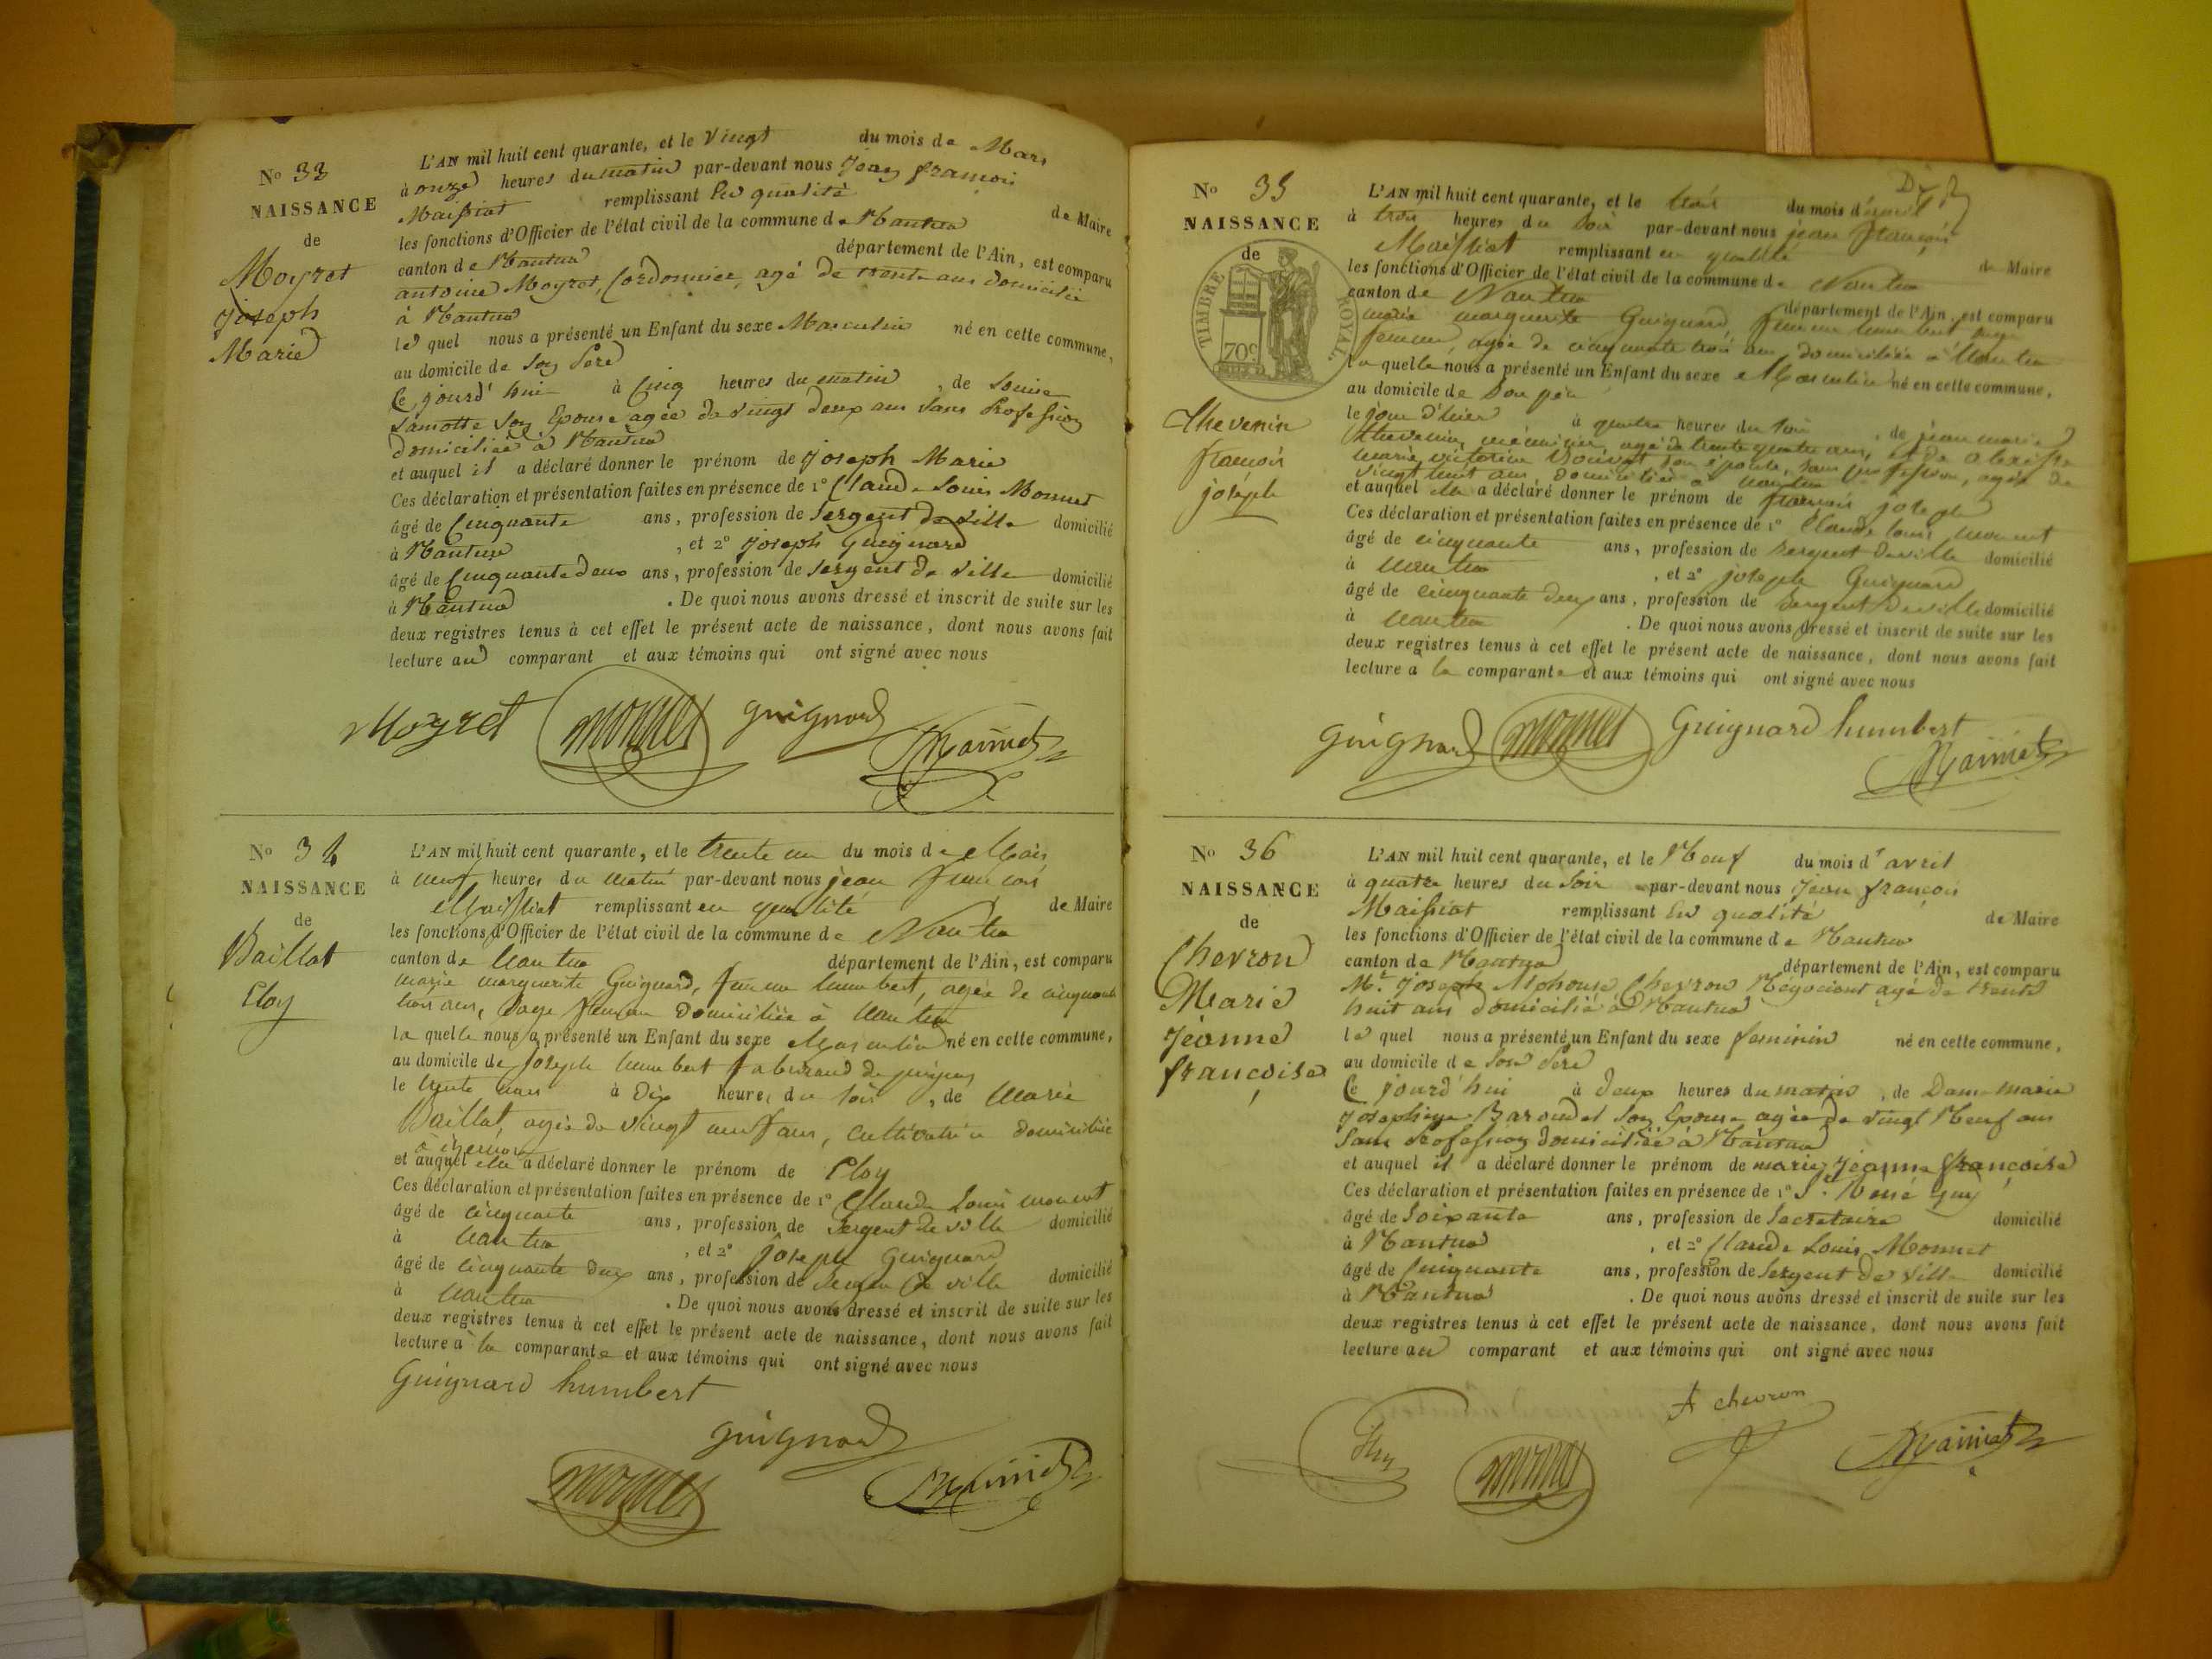 N° 33
NAISSANCE
de
Moyret
joseph
Marie
L'AN mil huit cent quarante, et le Vingt du mois de Mars
à onze heures du matin par-devant nous Jean françois
Maissiat remplissant En qualité de Maire
les fonctions d'Officier de l'état civil de la commune de Nantua
canton de Nantua département de l'Ain, est comparu
antoine Moyret, Cordonnier, agé de trente ans domicilié
à Nantua
le quel nous a présenté un Enfant du sexe Masculin né en cette commune,
au domicile de son Père
Ce jourd'hui à Cinq heures du matin, de Louise
Lamotte son Epouse agée de vingt deux ans sans Profession
domiciliée à Nantua
et auquel il a déclaré donner le prénom de joseph Marie
Ces déclaration et présentation faites en présence de 1° Claude Louis Monnet
âgé de Cinquante ans, profession de Sergent de Ville domicilié
à Nantua, et 2° Joseph Guignard
âgé de Cinquante deux ans, profession de Sergent de Ville domicilié
à Nantua. De quoi nous avons dressé et inscrit de suite sur les
deux registres tenus à cet effet le présent acte de naissance, dont nous avons fait
lecture au comparant et aux témoins qui ont signé avec nous
Moyret monnet guignard Maissiat
N° 34
NAISSANCE
de
Baillat
Eloy
L'AN mil huit cent quarante, et le trente un du mois de Mars
à neuf heures du matin par-devant nous jean francois
Maissiat remplissant en qualité de Maire
les fonctions d'Officier de l'état civil de la commune de Nantua
canton de Nantua département de l'Ain, est comparu
marie marguerite Guignard, femme humbert, agée de cinquante
trois ans, sage femme domiciliée à Nantua
la quelle nous a présenté un Enfant du sexe Masculin né en cette commune,
au domicile de joseph humbert fabricant de peignes
le trente mars à Dix heures du soir, de Marie
Baillat, agée de vingt neuf ans, cultivatrice domiciliée
à izernore
et auquel elle a déclaré donner le prénom de Eloy
Ces déclaration et présentation faites en présence de 1° Claude Louis monnet
âgé de cinquante ans, profession de Sergent de ville domicilié
à Nantua, et 2° joseph Guignard
âgé de cinquante deux ans, profession de Sergent de ville domicilié
à Nantua. De quoi nous avons dressé et inscrit de suite sur les
deux registres tenus à cet effet le présent acte de naissance, dont nous avons fait
lecture à la comparante et aux témoins qui ont signé avec nous
Guignard humbert
guignard
monnet Maissiat
N° 35
NAISSANCE
de
TIMBRE ROYAL
70c
Thevenin
francois
joseph
L'AN mil huit cent quarante, et le trois du mois d'avril
à trois heures du soir par-devant nous jean françois
Maissiat remplissant en qualité de Maire
les fonctions d'Officier de l'état civil de la commune de Nantua
canton de Nantua département de l'Ain, est comparu
marie marguerite Guignard, femme humbert sage
femme, agée de cinquante trois ans, domiciliée à Nantua
la quelle nous a présenté un Enfant du sexe Masculin né en cette commune,
au domicile de Son père
le jour d'hier à quatre heures du soir, de jean marie
thevenin, menuisier agé de trente quatre ans, et de
marie victorine son épouse, sans profession, agée de
vingt huit ans domiciliés à nantua
et auquel elle a déclaré donner le prénom de francois joseph
Ces déclaration et présentation faites en présence de 1° Claude louis monnet
âgé de cinquante ans, profession de Sergent de ville domicilié
à nantua, et 2° joseph Guignard
âgé de cinquante deux ans, profession de Sergent de ville domicilié
à nantua. De quoi nous avons dressé et inscrit de suite sur les
deux registres tenus à cet effet le présent acte de naissance, dont nous avons fait
lecture à la comparante et aux témoins qui ont signé avec nous
guignard monnet Guignard humbert
Maissiat
N° 36
NAISSANCE
de
Chevron
Marie
Jéanne
françoise
L'AN mil huit cent quarante, et le Neuf du mois d'avril
à quatre heures du Soir par-devant nous Jean françois
Maissiat remplissant En qualité de Maire
les fonctions d'Officier de l'état civil de la commune de Nantua
canton de Nantua département de l'Ain, est comparu
Mr. Joseph Alphonse Chevron Négociant agé de trente
huit ans domicilié à Nantua
le quel nous a présenté un Enfant du sexe feminin né en cette commune,
au domicile de Son Père
Ce jourd'hui à Deux heures du matin, de Dame marie
Josephine Baroudel Son Epouse agée de vingt Neuf ans
Sans Profession domiciliée à Nantua
et auquel il a déclaré donner le prénom de marie Jéanne françoise
Ces déclaration et présentation faites en présence de 1° Sr. René Guy
âgé de Soixante ans, profession de Secretaire domicilié
à Nantua, et 2° Claude Louis Monnet
âgé de Cinquante ans, profession de Sergent de Ville domicilié
à Nantua. De quoi nous avons dressé et inscrit de suite sur les
deux registres tenus à cet effet le présent acte de naissance, dont nous avons fait
lecture au comparant et aux témoins qui ont signé avec nous
A chevron
Guy monnet Maissiat